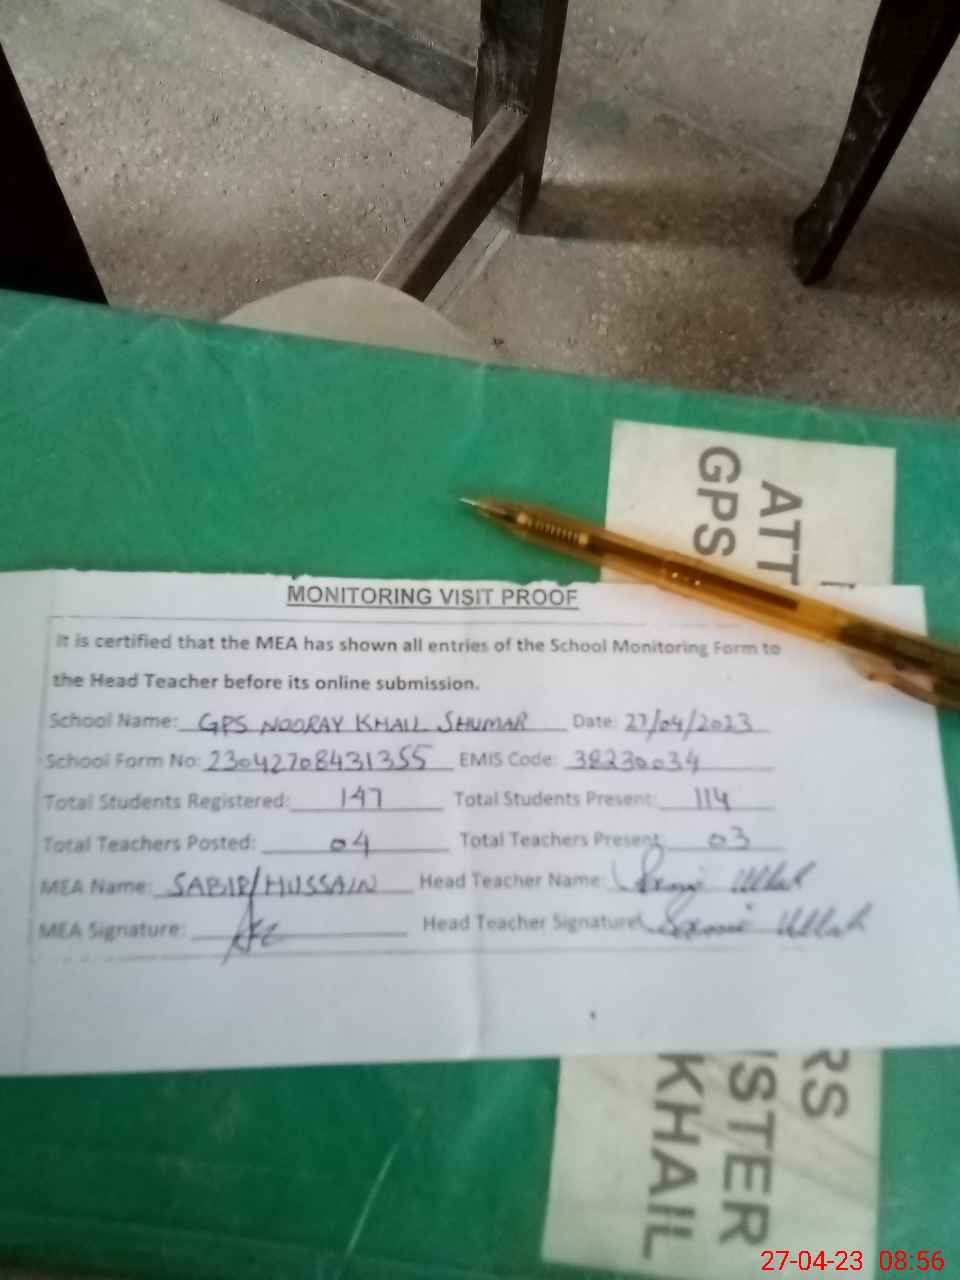 ATT
GPS
MONITORING VISIT PROOF
It is certified that the MEA has shown all entries of the School Monitoring Form to
the Head Teacher before its online submission.
School Name: GPS NOORAY KHAIL SHUMAR Date: 27/04/2023
School Form No: 23042708431355 EMIS Code: 38230034
Total Students Registered: 147 Total Students Present: 114
Total Teachers Posted: 04 Total Teachers Present: 03
MEA Name: SABIR HUSSAIN Head Teacher Name: Sami Ullah
MEA Signature: Head Teacher Signature Sami Ullah
RS
ISTER
KHAIL
27-04-23 08:56